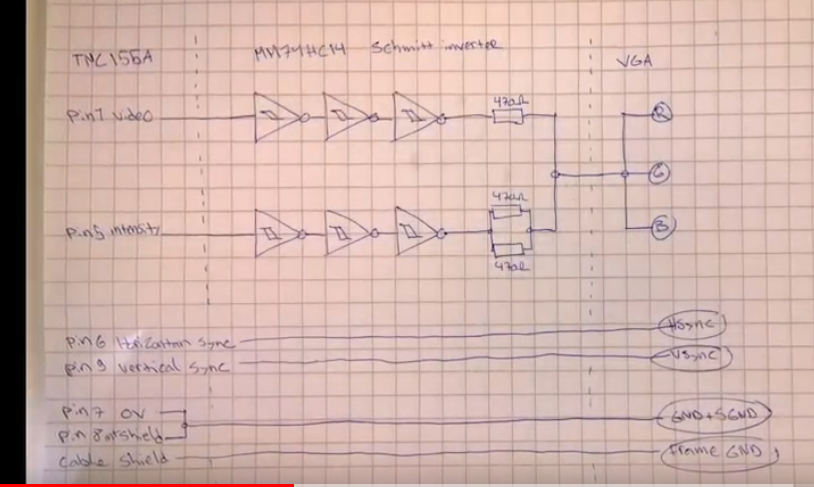 TMC155A MM74HC14 Schmitt inverter VGA
Pin1 video 470Ω R
G
Pin5 intensity 470Ω B
470Ω
pin6 Horizontan Sync HSync
pin9 vertical Sync VSync
Pin7 0V GND+SGND
Pin 8 intshield
Cable Shield Frame GND